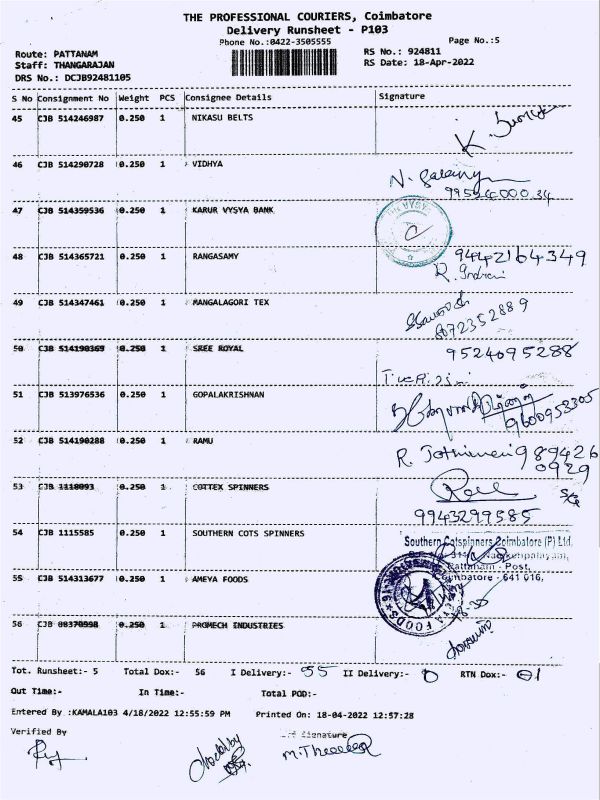 THE PROFESSIONAL COURIERS, Coimbatore
Delivery Runsheet - P103
Phone No.:0422-3505555 Page No.:5
Route: PATTANAM RS No.: 924811
Staff: THANGARAJAN RS Date: 18-Apr-2022
DRS No.: DCJB92481105
S No Consignment No Weight PCS Consignee Details Signature
45 CJB 514246987 0.250 1 NIKASU BELTS
46 CJB 514290728 0.250 1 VIDHYA
47 CJB 514359536 0.250 1 KARUR VYSYA BANK
48 CJB 514365721 0.250 1 RANGASAMY 9442164349
49 CJB 514347461 0.250 1 MANGALAGORI TEX
8072352889
50 CJB 514190369 0.250 1 SREE ROYAL 9524095288
51 CJB 513976536 0.250 1 GOPALAKRISHNAN
9600953305
52 CJB 514190288 0.250 1 RAMU
989426
0929
53 CJB 1118093 0.250 1 COTTEX SPINNERS
9943299585
54 CJB 1115585 0.250 1 SOUTHERN COTS SPINNERS
Southern Cotspinners Coimbatore (P) Ltd,
Pattanam - Post,
Coimbatore - 641 016,
55 CJB 514313677 0.250 1 AMEYA FOODS
56 CJB 88370998 0.250 1 PROMECH INDUSTRIES
Tot. Runsheet:- 5 Total Dox:- 56 I Delivery:- 55 II Delivery:- 0 RTN Dox:- 01
Out Time:- In Time:- Total POD:-
Entered By :KAMALA103 4/18/2022 12:55:59 PM Printed On: 18-04-2022 12:57:28
Verified By Signature